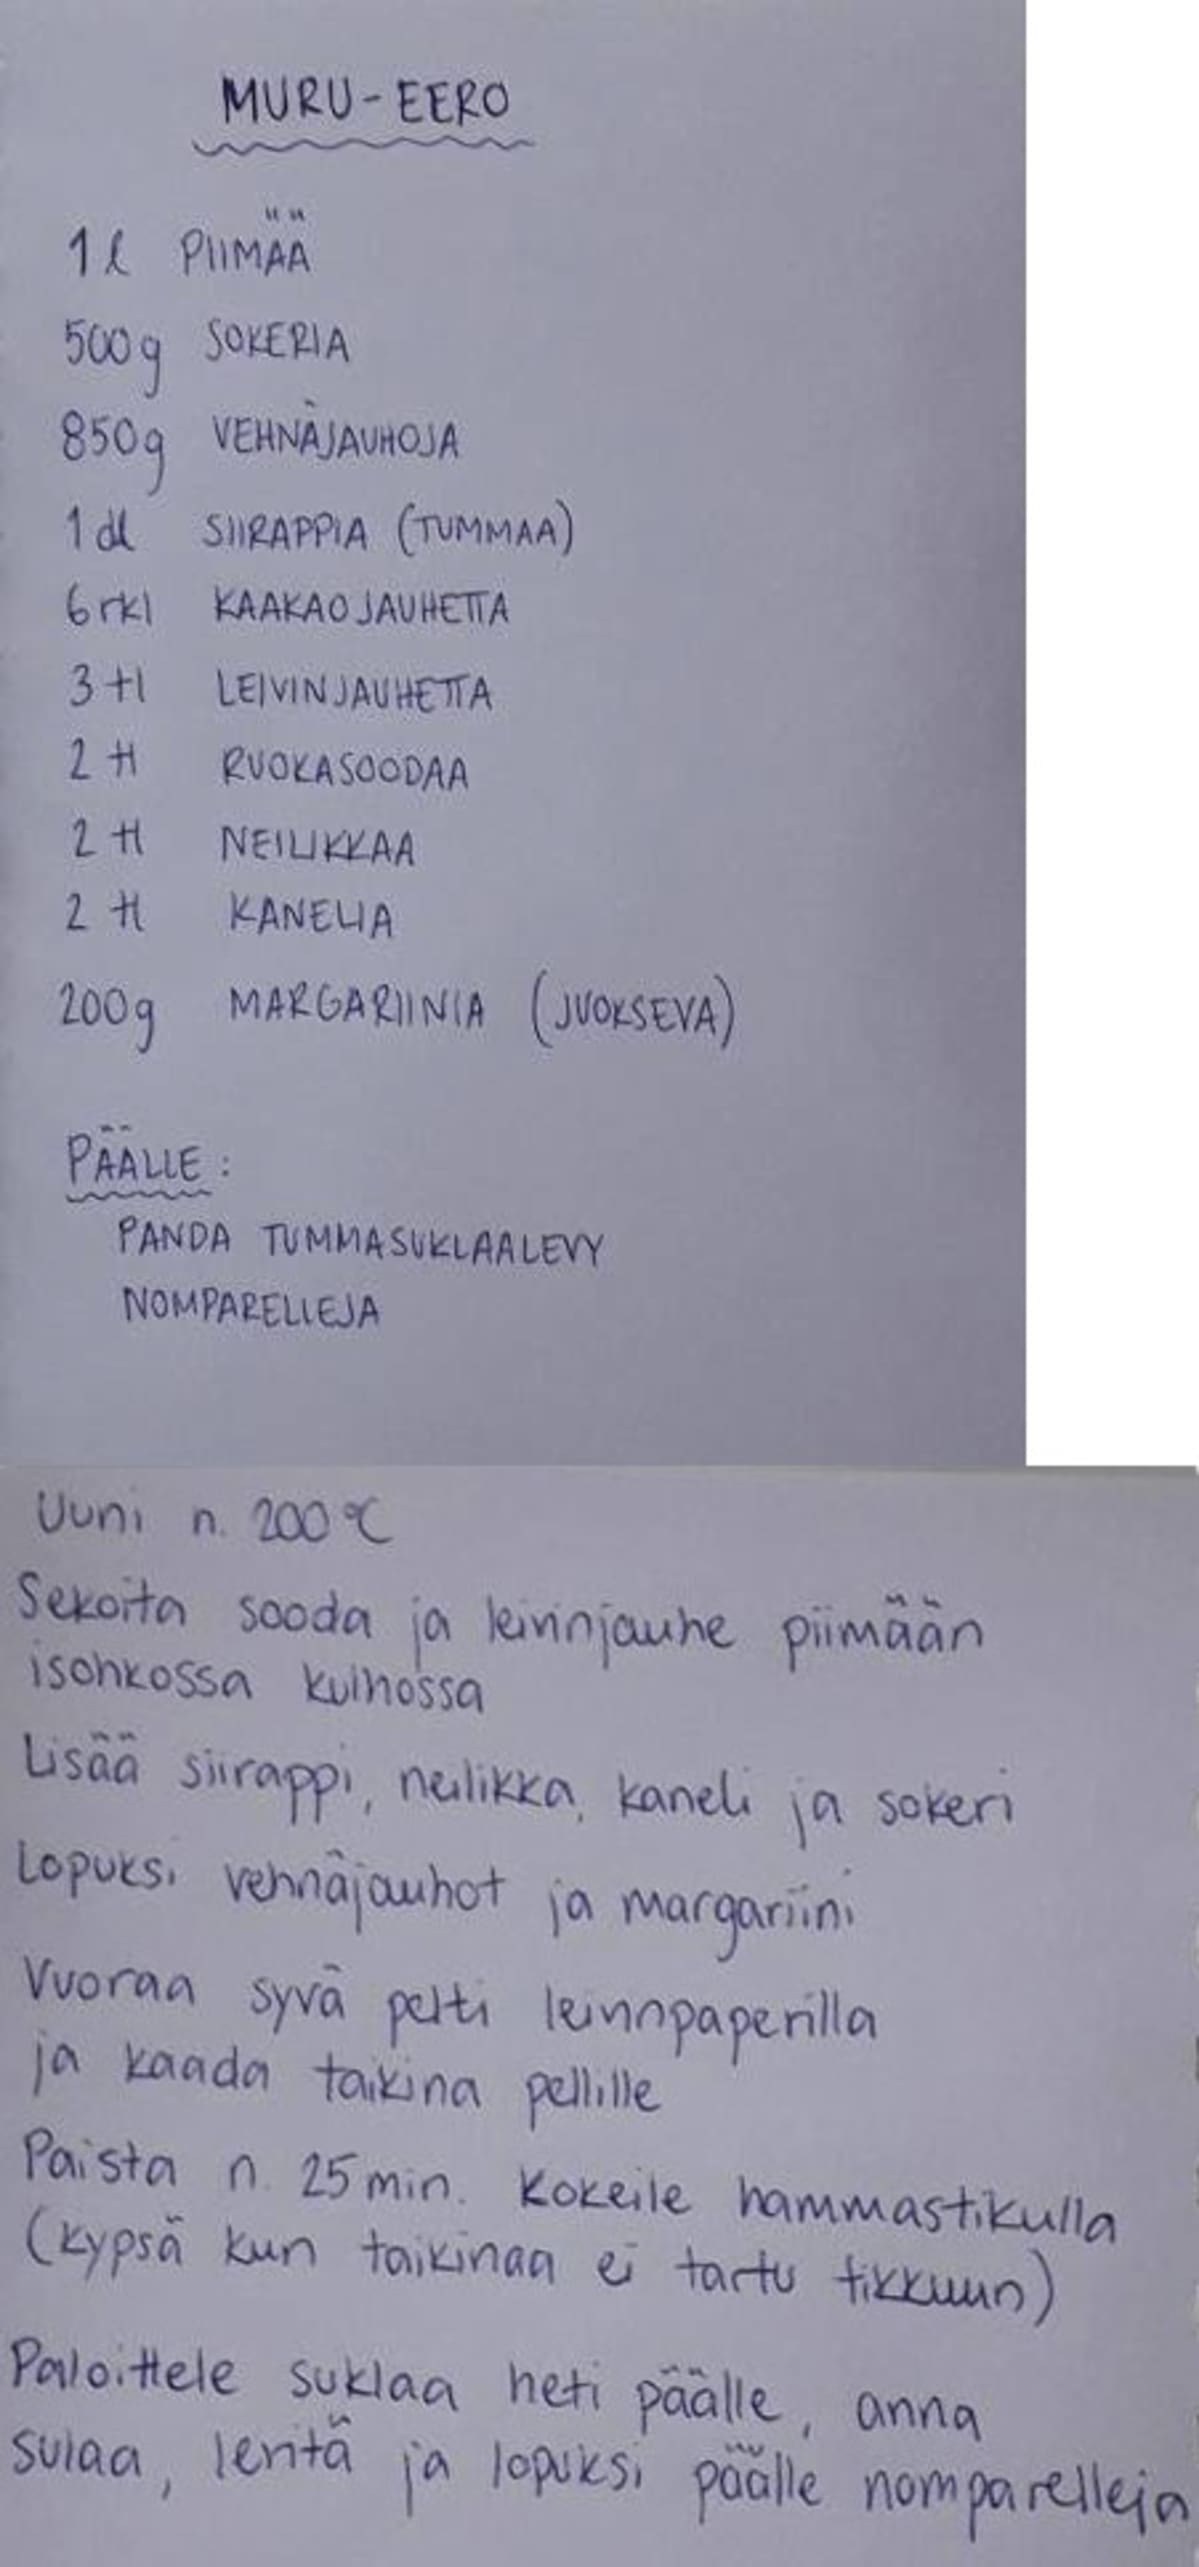 MURU-EERO
1 l PIIMÄÄ
500g SOKERIA
850g VEHNÄJAUHOJA
1 dl SIIRAPPIA (TUMMAA)
6 rkl KAAKAOJAUHETTA
3 tl LEIVINJAUHETTA
2 tl RUOKASOODAA
2 tl NEILIKKAA
2 tl KANELIA
200g MARGARIINIA (JUOKSEVA)
PÄÄLLE:
PANDA TUMMASUKLAALEVY
NOMPARELLEJA
Uuni n. 200 °C
Sekoita sooda ja leivinjauhe piimään
isohkossa kulhossa
Lisää siirappi, neilikka, kaneli ja sokeri
Lopuksi vehnäjauhot ja margariini
Vuoraa syvä pelti leivinpaperilla
ja kaada taikina pellille
Paista n. 25 min. Kokeile hammastikulla
(kypsä kun taikinaa ei tartu tikkuun)
Paloittele suklaa heti päälle, anna
sulaa, levitä ja lopuksi päälle nomparelleja